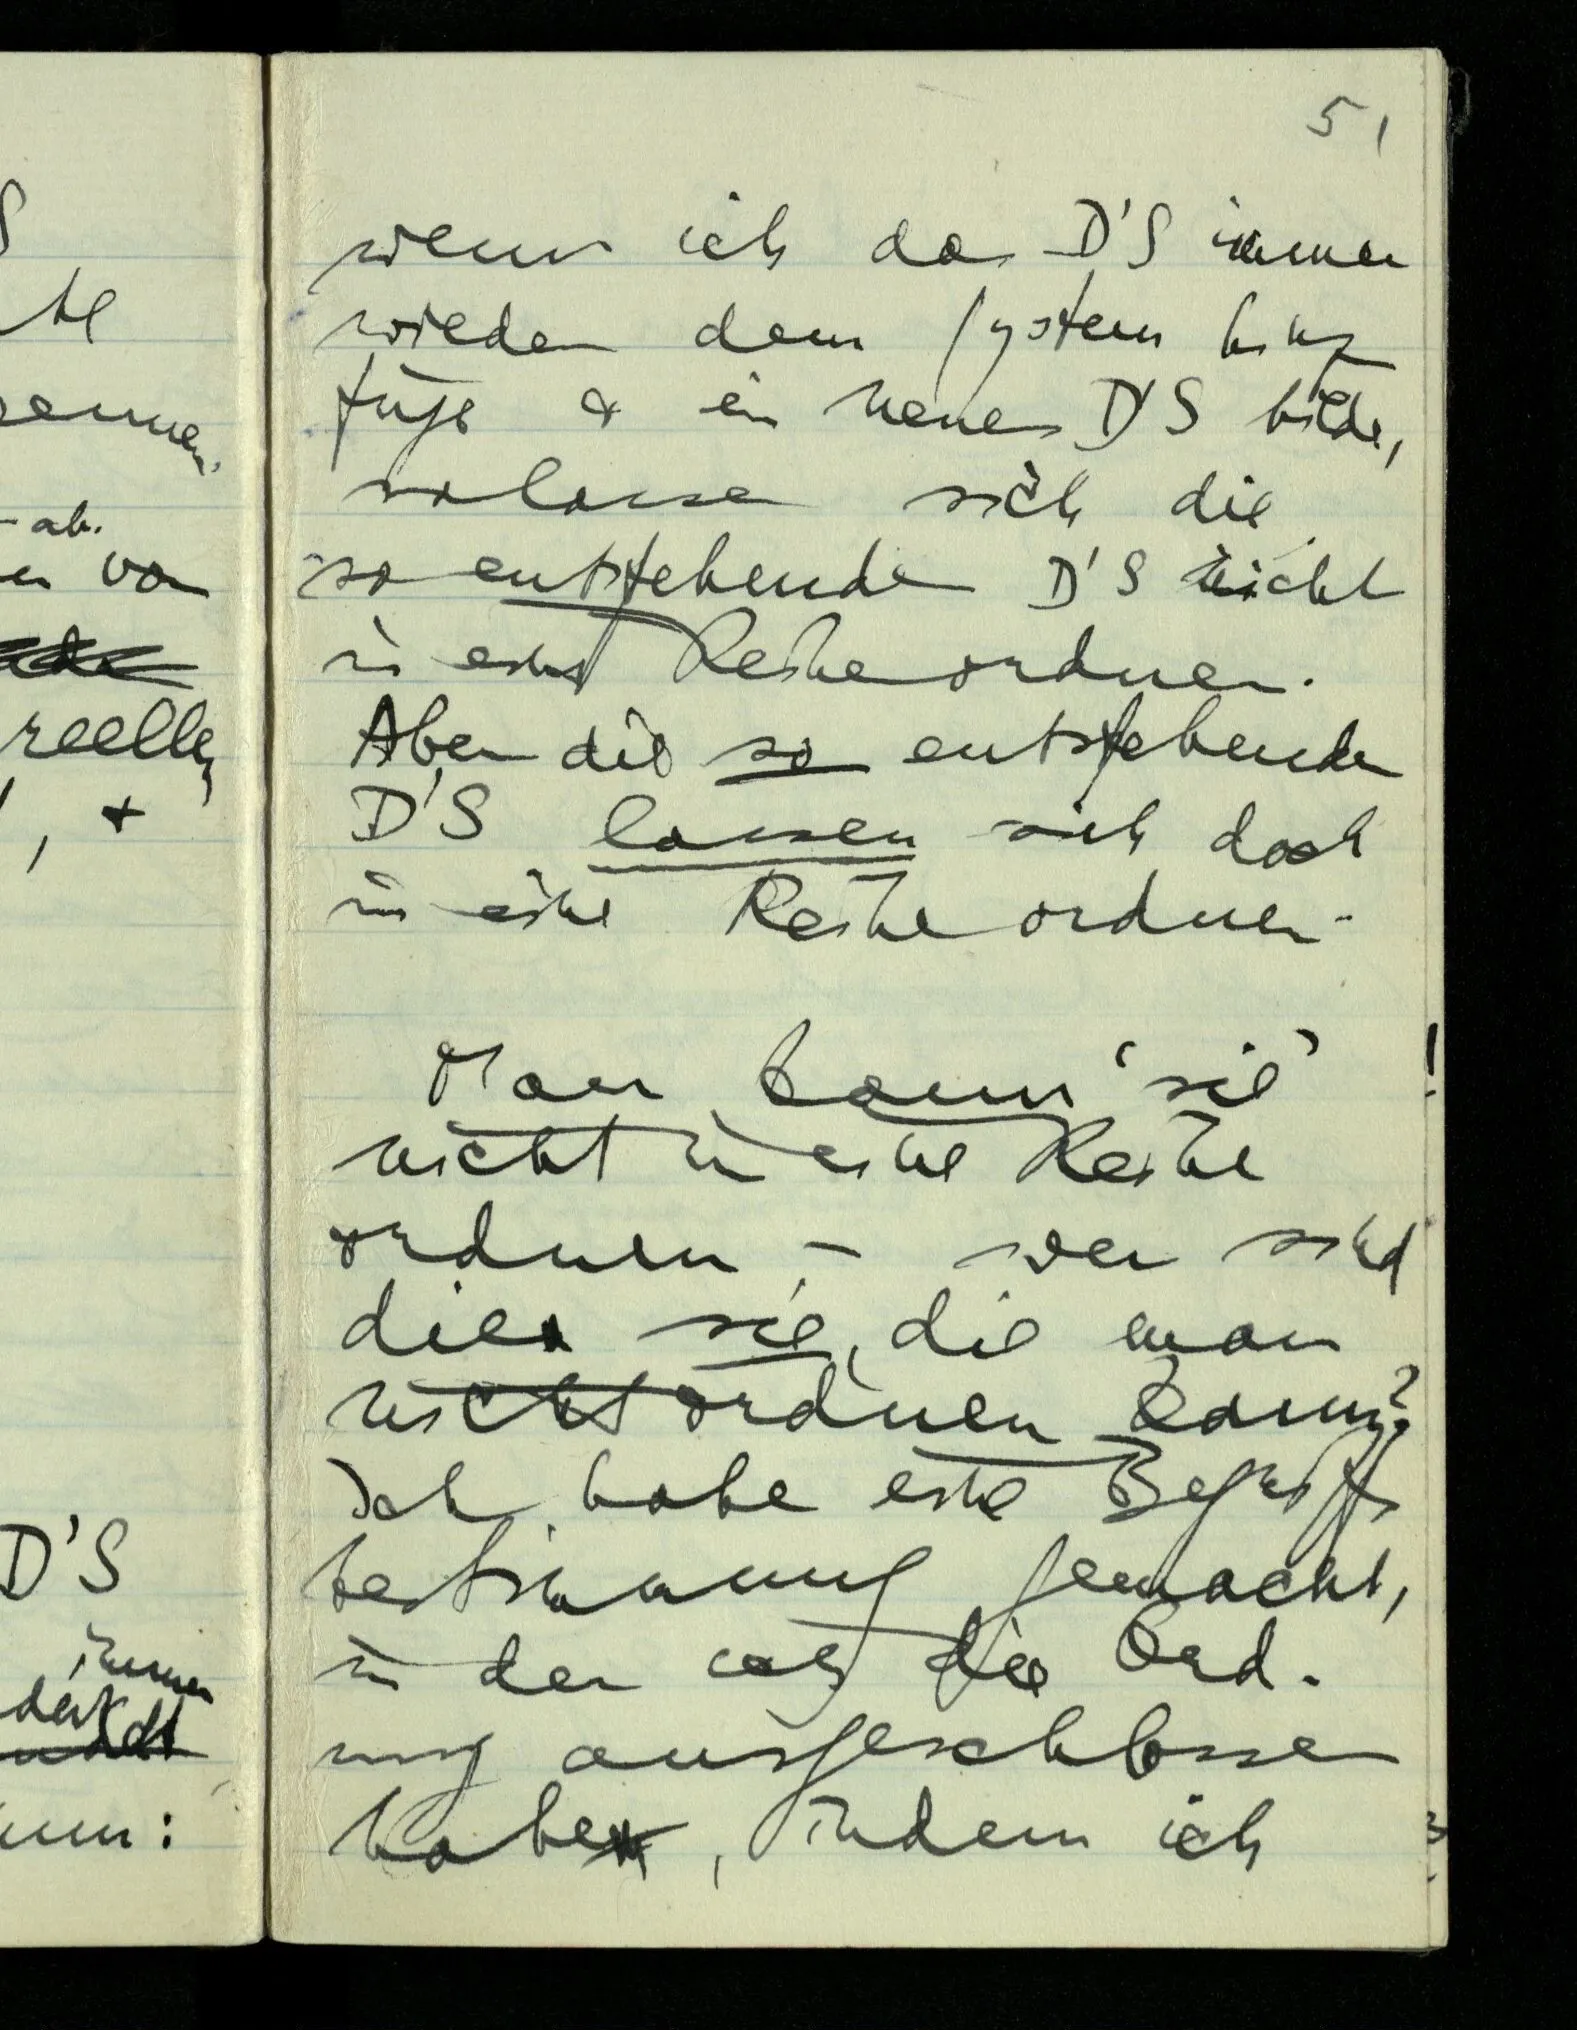 S
51
wenn ich das D'S immer
wieder dem System hinzu
füge & ein neues D'S bilde,
so lassen sich die
so entstehenden D'S nicht
in eine Reihe ordnen.
Aber die so entstehenden
D'S lassen sich doch
in eine Reihe ordnen.
Man kann 'sie'
nicht in eine Reihe
ordnen, – wer sind
die sie, die man
nicht ordnen kann?
Ich habe eine Begriffs
bestimmung gemacht,
in der ich die Ord-
nung ausgeschlossen
habe, indem ich
- ab.
von
reellen
, +
D'S
immer
: